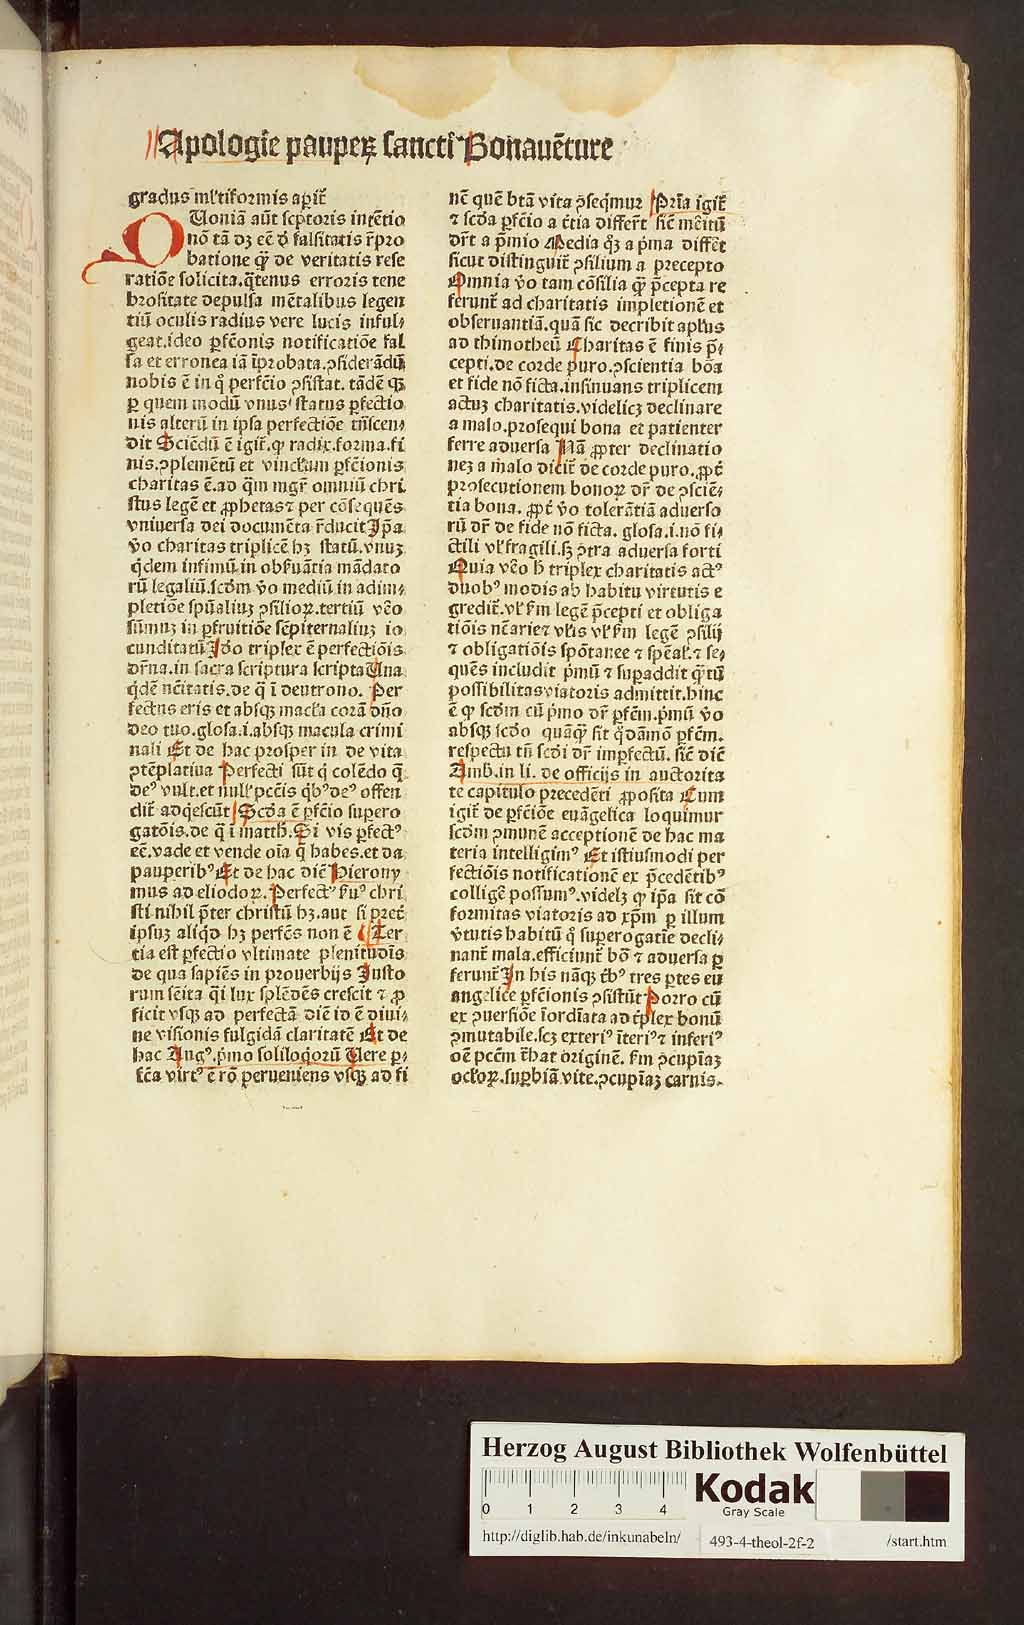 Apologie pauperꝝ sancti Bonauēture
gradus ml̓tiformis aꝑit̄
QUoniā aūt scp̄toris intētio
nō tā dꝫ eē d̓ falsitatis r̄pro
batione qᷓ de veritatis rese
ratiōe solicita.qᷓtenus erroris tene
brositate depulsa mētalibus legen
tiū oculis radius vere lucis inful⸗
geat.ideo ꝑfc̄onis notificatiōe fal
sa et erronea iā īprobata.ꝯsiderādū
nobis ē in qͦ perfc̄io ꝯsistat. tādē qꝫ
ꝑ quem modū vnus status ꝑfectio
nis alterū in ipsa perfectiōe trāscen⸗
dit Sciēdū ē igit̄.ꝙ radix.forma.fi
nis.ꝯplemētū et vinclum ꝑfc̄ionis
charitas ē.ad qᷓm mgr̄ omniū chri
stus legē et ꝓphetas⁊ per cōsequēs
vniuersa dei documēta r̄ducit Ip̄a
v̄o charitas triplicē hꝫ statū.vnuꝫ
qͥdem infimū.in obſuātia mādato
rū legaliū.scd̄m v̄o mediū in adim⸗
pletiōe spūaliuꝫ ꝯsilioꝝ.tertiū v̄eo
sūmuꝫ in ꝑfruitiōe sēpiternaliuꝫ io
cunditatū Ido triplex ē perfectiōis
dr̄na.in sacra scriptura scripta Una
qͥdē nc̄itatis.de qᷓ ī deutrono. Per
fectus eris et absqꝫ macl̓a corā dn̄o
deo tuo.glosa.i.absqꝫ macula crimi
nali Et de hac prosper in de vita
ꝯtēplatiua Perfecti sūt qͥ colēdo qᷓ
deꝰ vult.et null̓ pcc̄is qͥbꝰdeꝰ offen
dit̄ adq̓escūt Scd̓a ē ꝑfc̄io supero
gatōis.de qᷓ ī matth̄.Si vis ꝑfectꝰ
eē.vade et vende oīa q̄ habes.et da
pauperibꝰ Et de hac diē Hierony
mus ad eliodoꝝ.Perfectꝰ ſuꝰ chri
sti nihil p̄ter christū hꝫ.aut si p̄ret̄
ipsuꝫ aliqͥd hꝫ perfēs non ē Ter
tia est ꝑfectio vltimate plenitudīs
de qua sapiēs in prouerbijs Justo
rum sēita qᷓi lux splēdēs crescit ⁊ ꝓ
ficit vsqꝫ ad perfectā diē id ē diui⸗
ne visionis fulgidā claritatē Et de
hac Augꝰ.pͥmo soliloqͦrū Uere ꝑ⸗
fc̄a virtꝰ ē rō perueniens vsqꝫ ad fi
nē quē btā vita ꝓseqͥmur Prīa igit̄
⁊ scd̓a ꝑfc̄io a t̄tia differt̄ sic̄ mēitū
dr̄t a p̄mio Media qͣꝫ a pͥma differt̄
sicut distinguit̄ ꝯsilium a precepto
Omnia v̄o tam cōsilia qᷓ p̄cepta re
ferunt̄ ad charitatis impletionē et
obseruantiā.quā sic decribit apl̓us
ad thimotheū Charitas ē finis p̄⸗
cepti.de corde puro.ꝯscientia bōa
et fide nō ficta.insinuans triplicem
actuꝫ charitatis.videlicꝫ declinare
a malo.prosequi bona et patienter
ferre aduersa Nā ꝓpter declinatio
neꝫ a malo dicit̄ de corde puro.ꝓpt̄
prosecutionem bonoꝝ dr̄ de ꝯsciē⸗
tia bona. ꝓpt̄ v̄o tolerātiā aduerso
rū dr̄ de fide nō ficta. glosa.i.nō fi⸗
ctili vl̓ fragili.sꝫ ꝯtra aduersa forti
Quia v̄eo h̄ triplex charitatis actꝰ
duobꝰ modis ab habitu virtutis e
gredit̄.vl̓ ſm legē p̄cepti et obliga
tiōis nēarie⁊ vl̓is vl̓ ſm legē ꝯsilij
⁊ obligatiōis spōtanee ⁊ spēal̓.⁊ se⸗
quēs includit pͥmū ⁊ suꝑaddit qᷓtū
possibilitasviatoris admittit.hinc
ē ꝙ scd̄m cū pͥmo dr̄ ꝑfc̄m.pͥmū v̄o
absqꝫ scd̓o quāqᷓ sit qͦdāmō ꝑfc̄m.
respectu tn̄ scd̓i dr̄ imꝑfectū. sic̄ diē
Amb̄.in li. de officijs in auctorita
te capitulo precedēti ꝓposita Cum
igit̄ de ꝑfc̄iōe euāgelica loquimur
scd̄m ꝯmunē acceptionē de hac ma
teria intelligimꝰ Et istiusmodi per
fectiōis notificationē ex p̄cedētibꝰ
colligē possumꝰ.videlꝫ ꝙ ip̄a sit cō
formitas viatoris ad xp̄m ꝑ illum
v̄tutis habitū qͦ suꝑerogatīe decli⸗
nant̄ mala.efficiunt̄ bōa ⁊ aduersa ꝑ
ferunt̄ In his nāqꝫ t̄bꝰ tres ꝑtes eu
angelice ꝑfc̄ionis ꝯsistūt Porro cū
ex ꝯuersiōe īordīata ad tͥplex bonū
ꝯmutabile.scꝫ exteriꝰ īteriꝰ⁊ inferiꝰ
oē pcc̄m t̄hat originē. ſm ꝯcupīaꝫ
ocl̓oꝝ.suꝑbiā vite.ꝯcupīaꝫ carnis.
Herzog August Bibliothek Wolfenbüttel
0 1 2 3 4
Kodak
Gray Scale
http://diglib.hab.de/inkunabeln/ 493-4-theol-2f-2 /start.htm